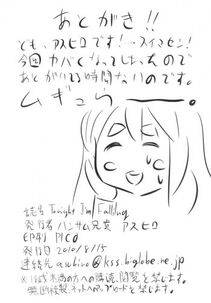 あとがき!!
どもっアスヒロです!…スイマセン!
今回カバくなってしまったので
あとがき
時間ないのです。
ムギュら
誌名 Tonight I'm Falling
発行者 ハンサム兄弟 アスヒロ
印刷 PICO
発行日 2010/8/15
連絡先 asuhiro@kss.biglobe.ne.jp
※18歳未満の方への購読、閲覧を禁じます。
無断複製、ネットへのアップロードを禁じます。